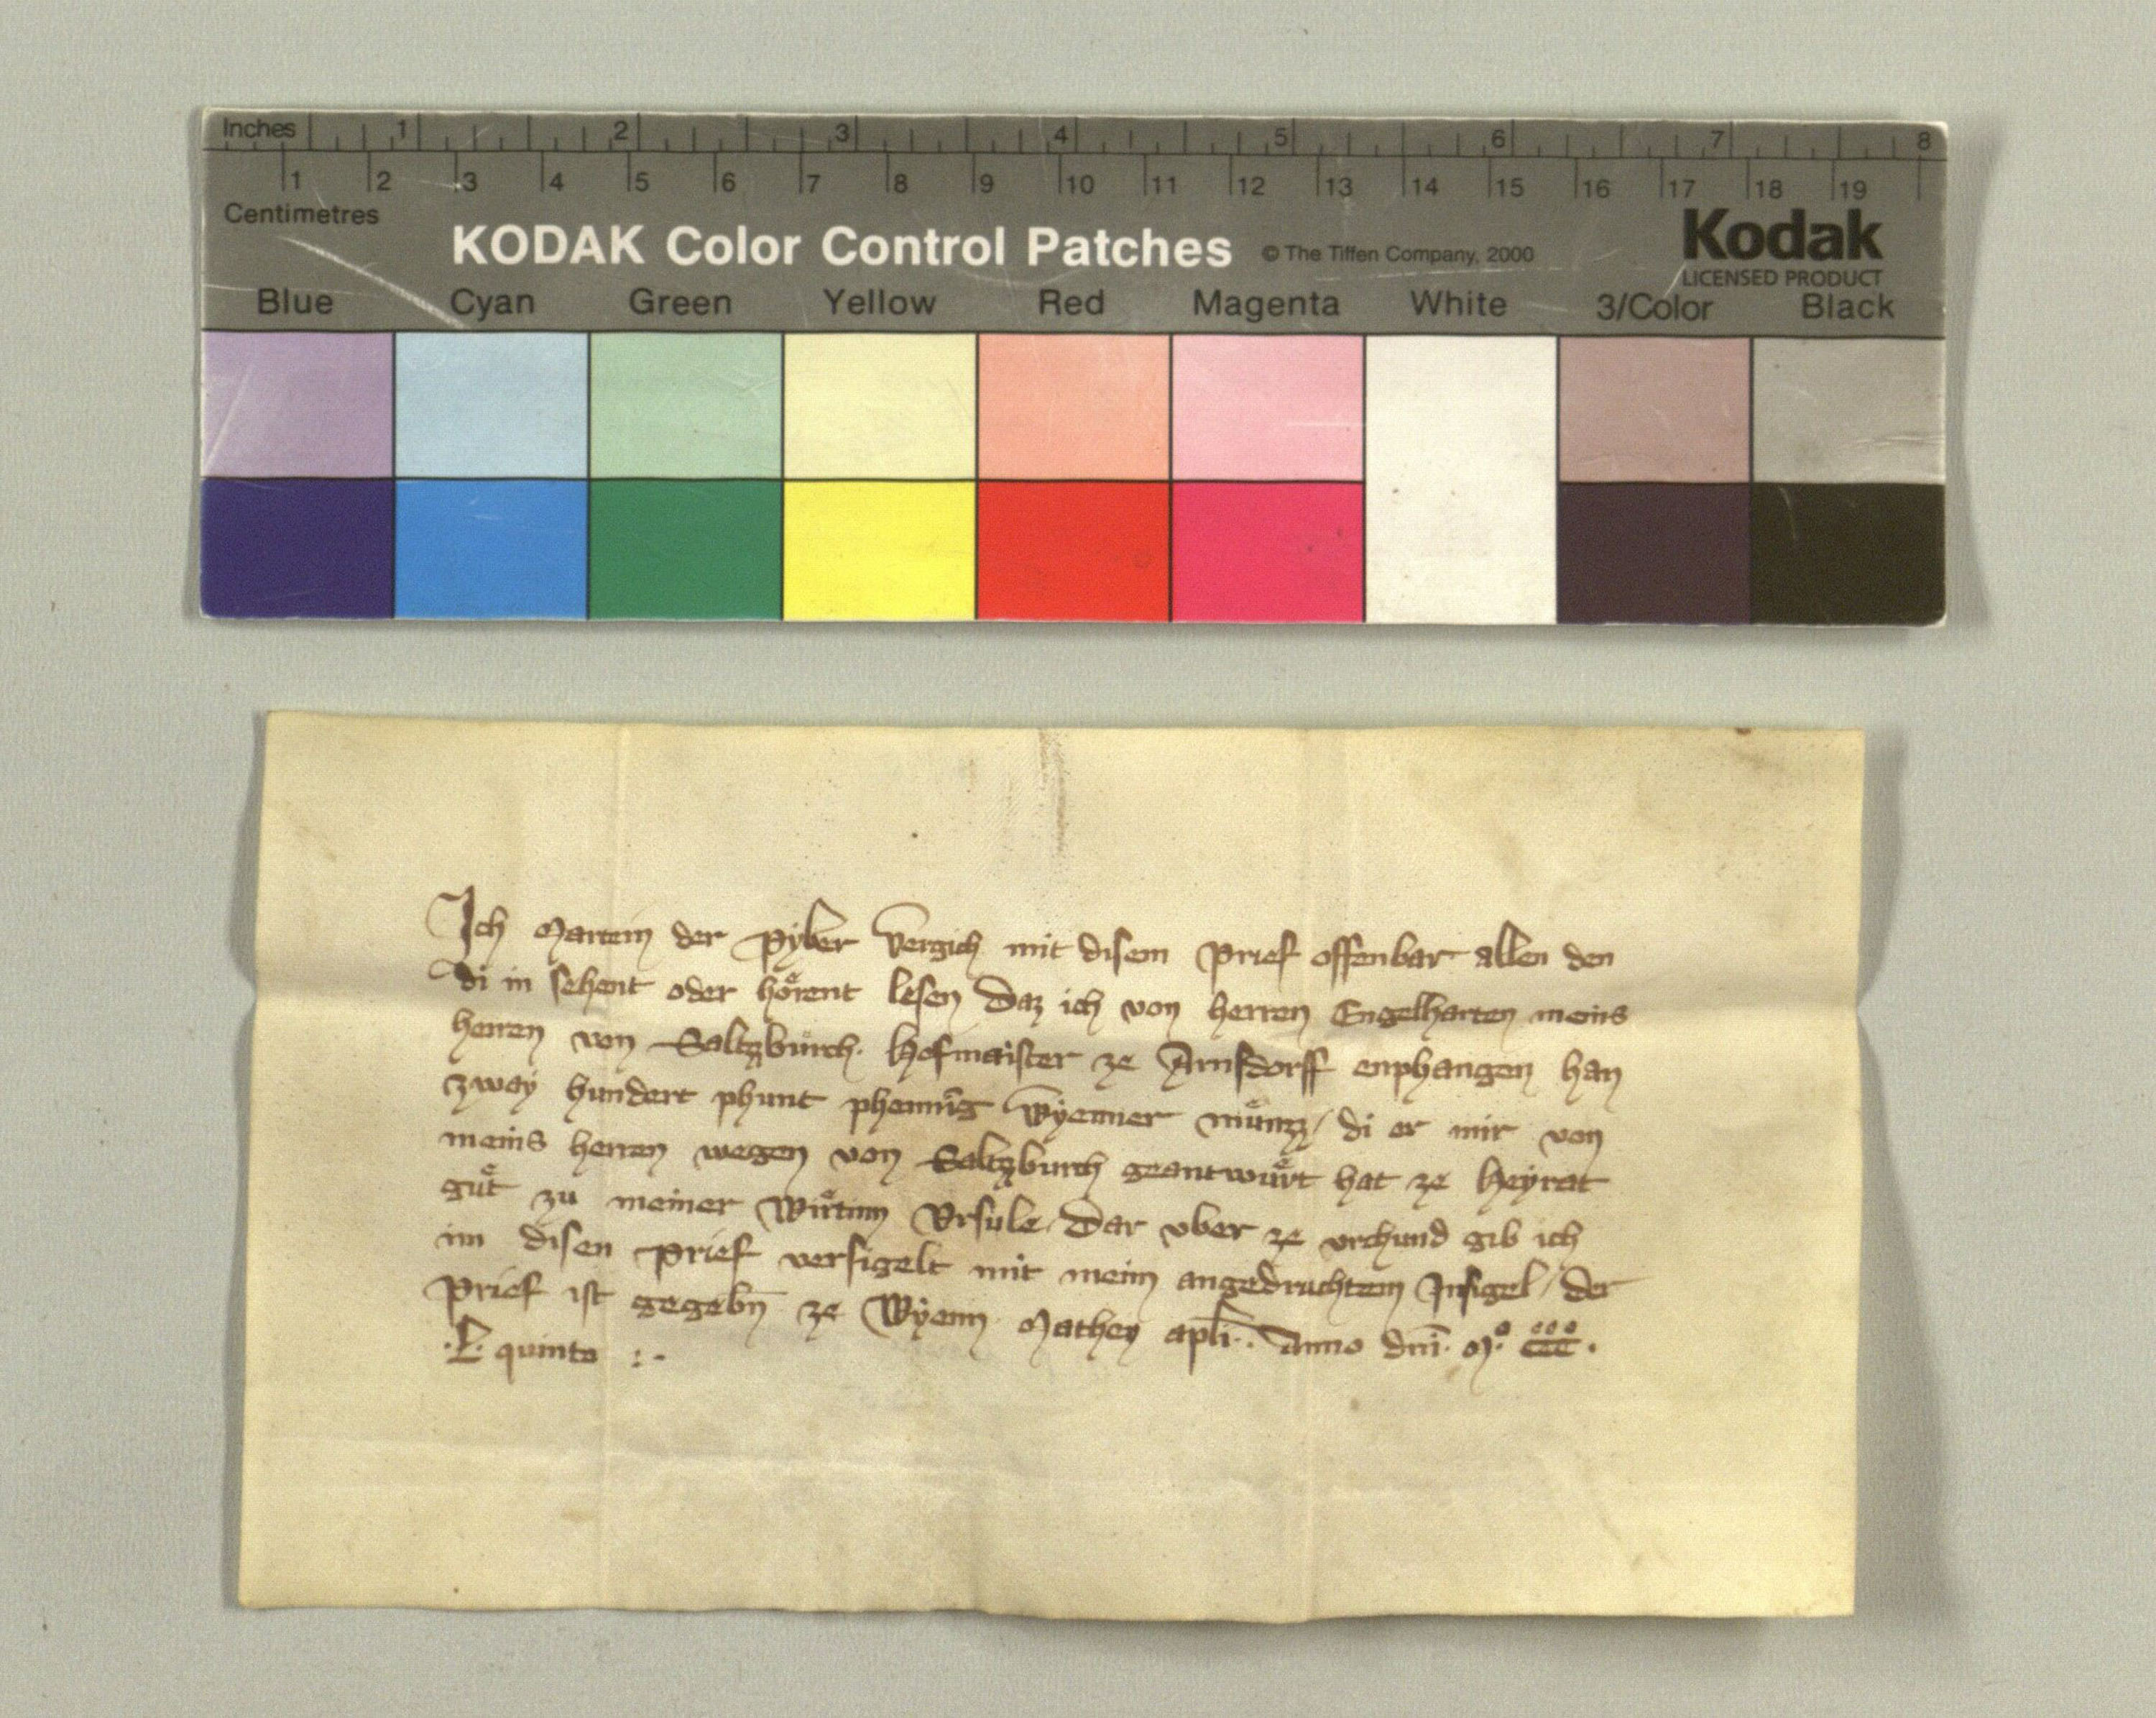 Inches 1 2 3 4 5 6 7 8
1 2 3 4 5 6 7 8 9 10 11 12 13 14 15 16 17 18 19
Centimetres
KODAK Color Control Patches © The Tiffen Company, 2000 Kodak
LICENSED PRODUCT
Blue Cyan Green Yellow Red Magenta White 3/Color Black
Ich Martein der Pyber vergich mit disem prief offenbar allen den
di in sehent oder hoͤrent lesen Daz ich von herren Engelharten meins
herren von Saltzburch Hofmaister ze Arnsdorff enphangen han
zway hundert phunt phenni̅g Wyenner muͤnzz / di er mir von
meins herren wegen von Saltzburch geantwuͤrt hat ze Heyrat
guͤt zu meiner Wirtinn Vrsule Dar vber ze vrchund gib ich
im disen prief versigelt mit meim angedruchtem Insigel / der
prief ist gegebn̅ ze Wyenn Mathey apl̅i. Anno dn̅i. Mͦ. ccc̅.
.L. quinto :-